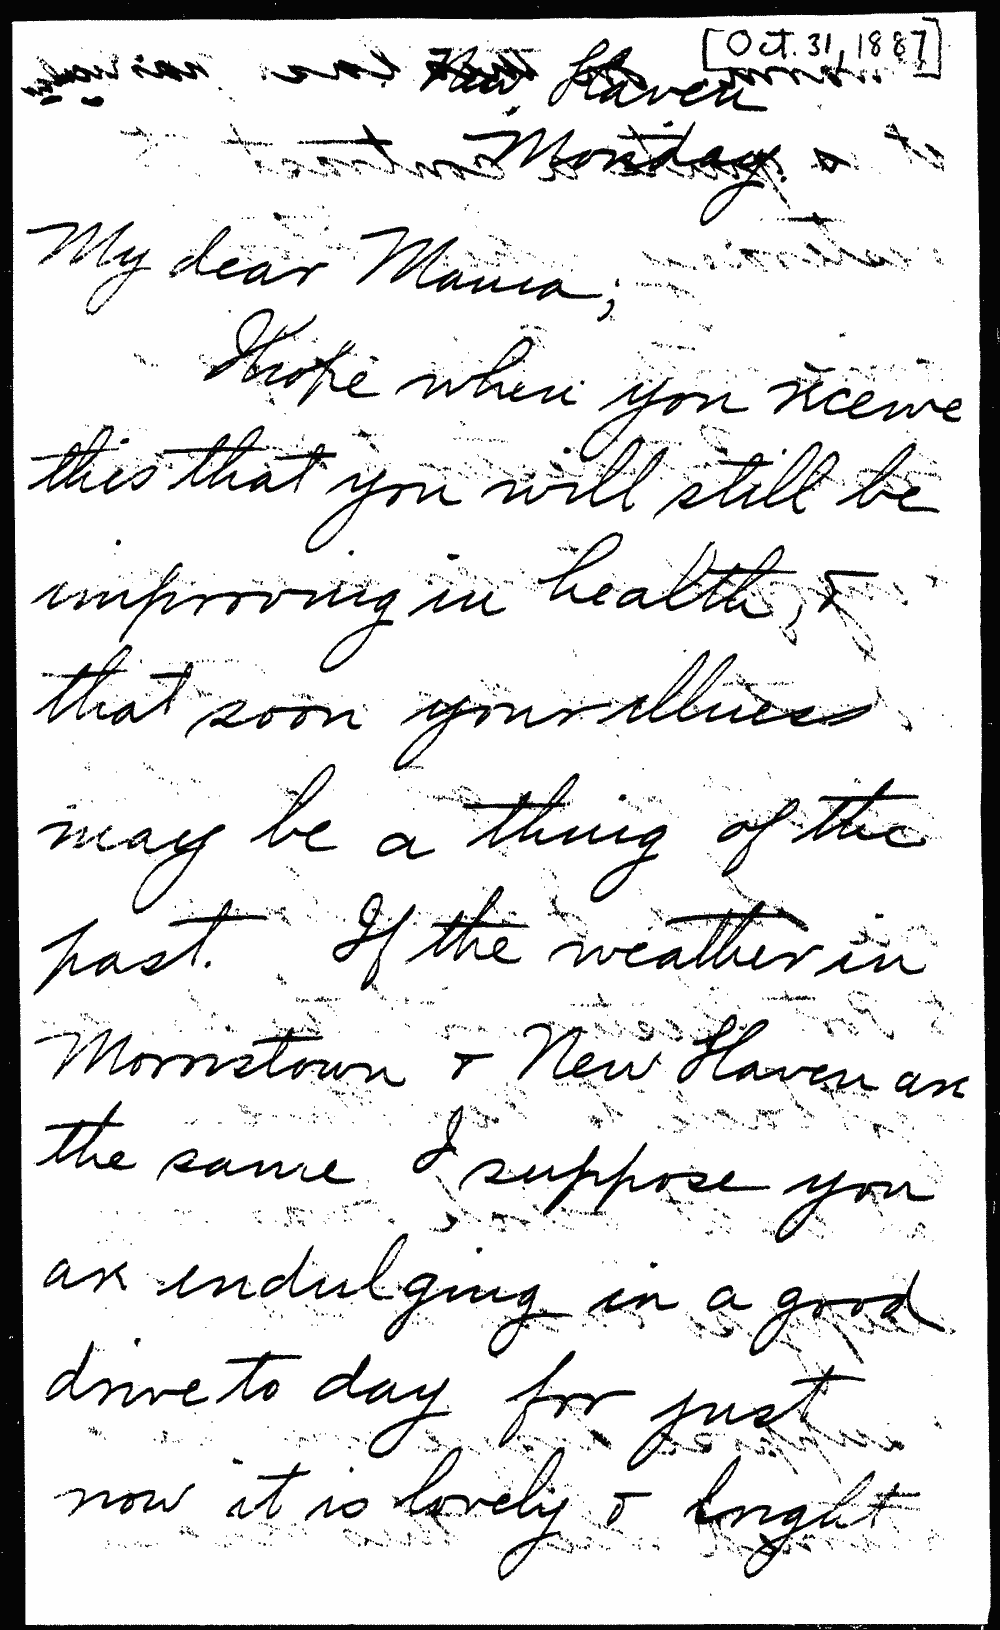 [Oct. 31, 1887]
New Haven
Monday.
My dear Mama;
I hope when you receive
this that you will still be
improving in health, &
that soon your illness
may be a thing of the
past. If the weather in
Morristown & New Haven are
the same I suppose you
are indulging in a good
drive to day for just
now it is lovely & bright